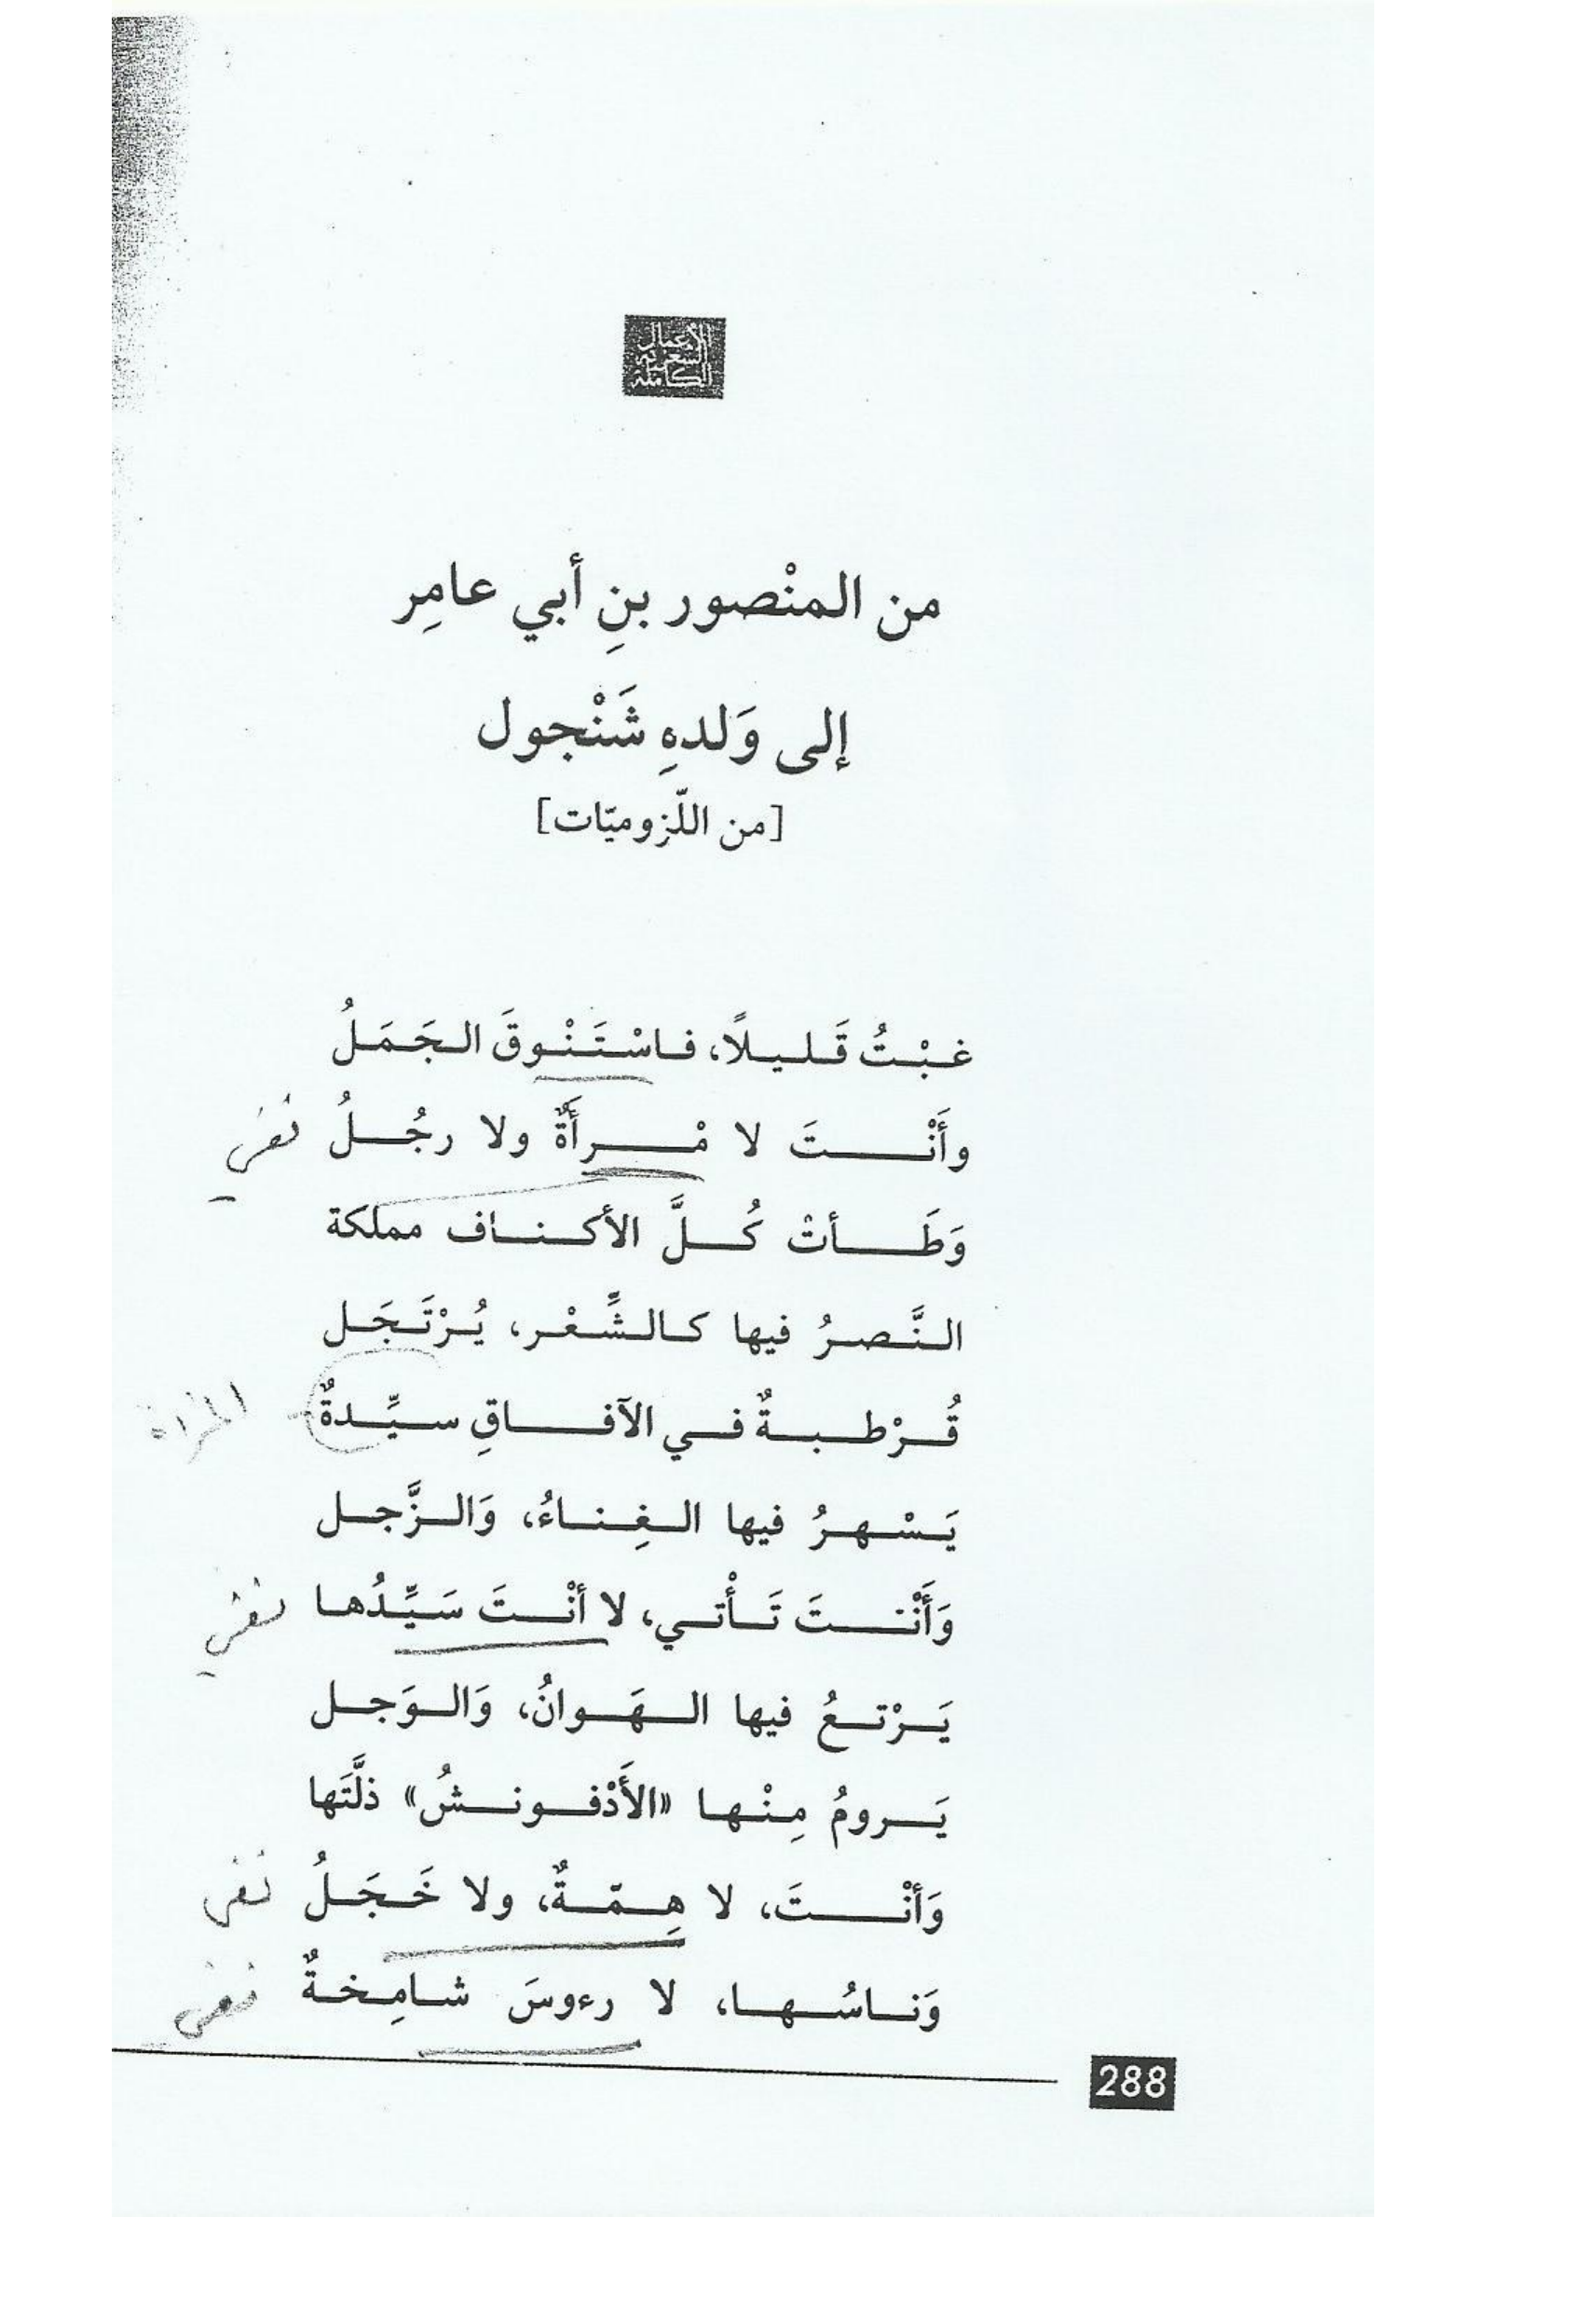 الأعمال
الشعرية
الكاملة
من المنْصور بنِ أبي عامِر
إلى وَلدهِ شَنْجول
[من اللّزوميّات]
غبْتُ قَليلًا، فاسْتَنْوقَ الجَمَلُ
وأَنْتَ لا مْرأَةٌ ولا رجُلُ نفي
وَطَأتْ كُلَّ الأكناف مملكة
النَّصرُ فيها كالشِّعْر، يُرْتَجَل
قُرْطبةٌ في الآفاقِ سيِّدةٌ المرأة
يَسْهرُ فيها الغِناءُ، وَالزَّجل
وَأَنْتَ تَأْتي، لا أنْتَ سَيِّدُها نفي
يَرْتعُ فيها الهَوانُ، وَالوَجل
يَرومُ مِنْها «الأَدْفونشُ» ذلَّتَها
وَأنْتَ، لا هِمّةٌ، ولا خَجَلُ نفي
وَناسُها، لا رءوسَ شامِخةٌ نفي
288